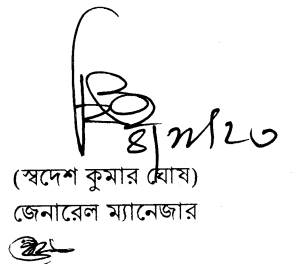 (স্বদেশ কুমার ঘোষ)
জেনারেল ম্যানেজার